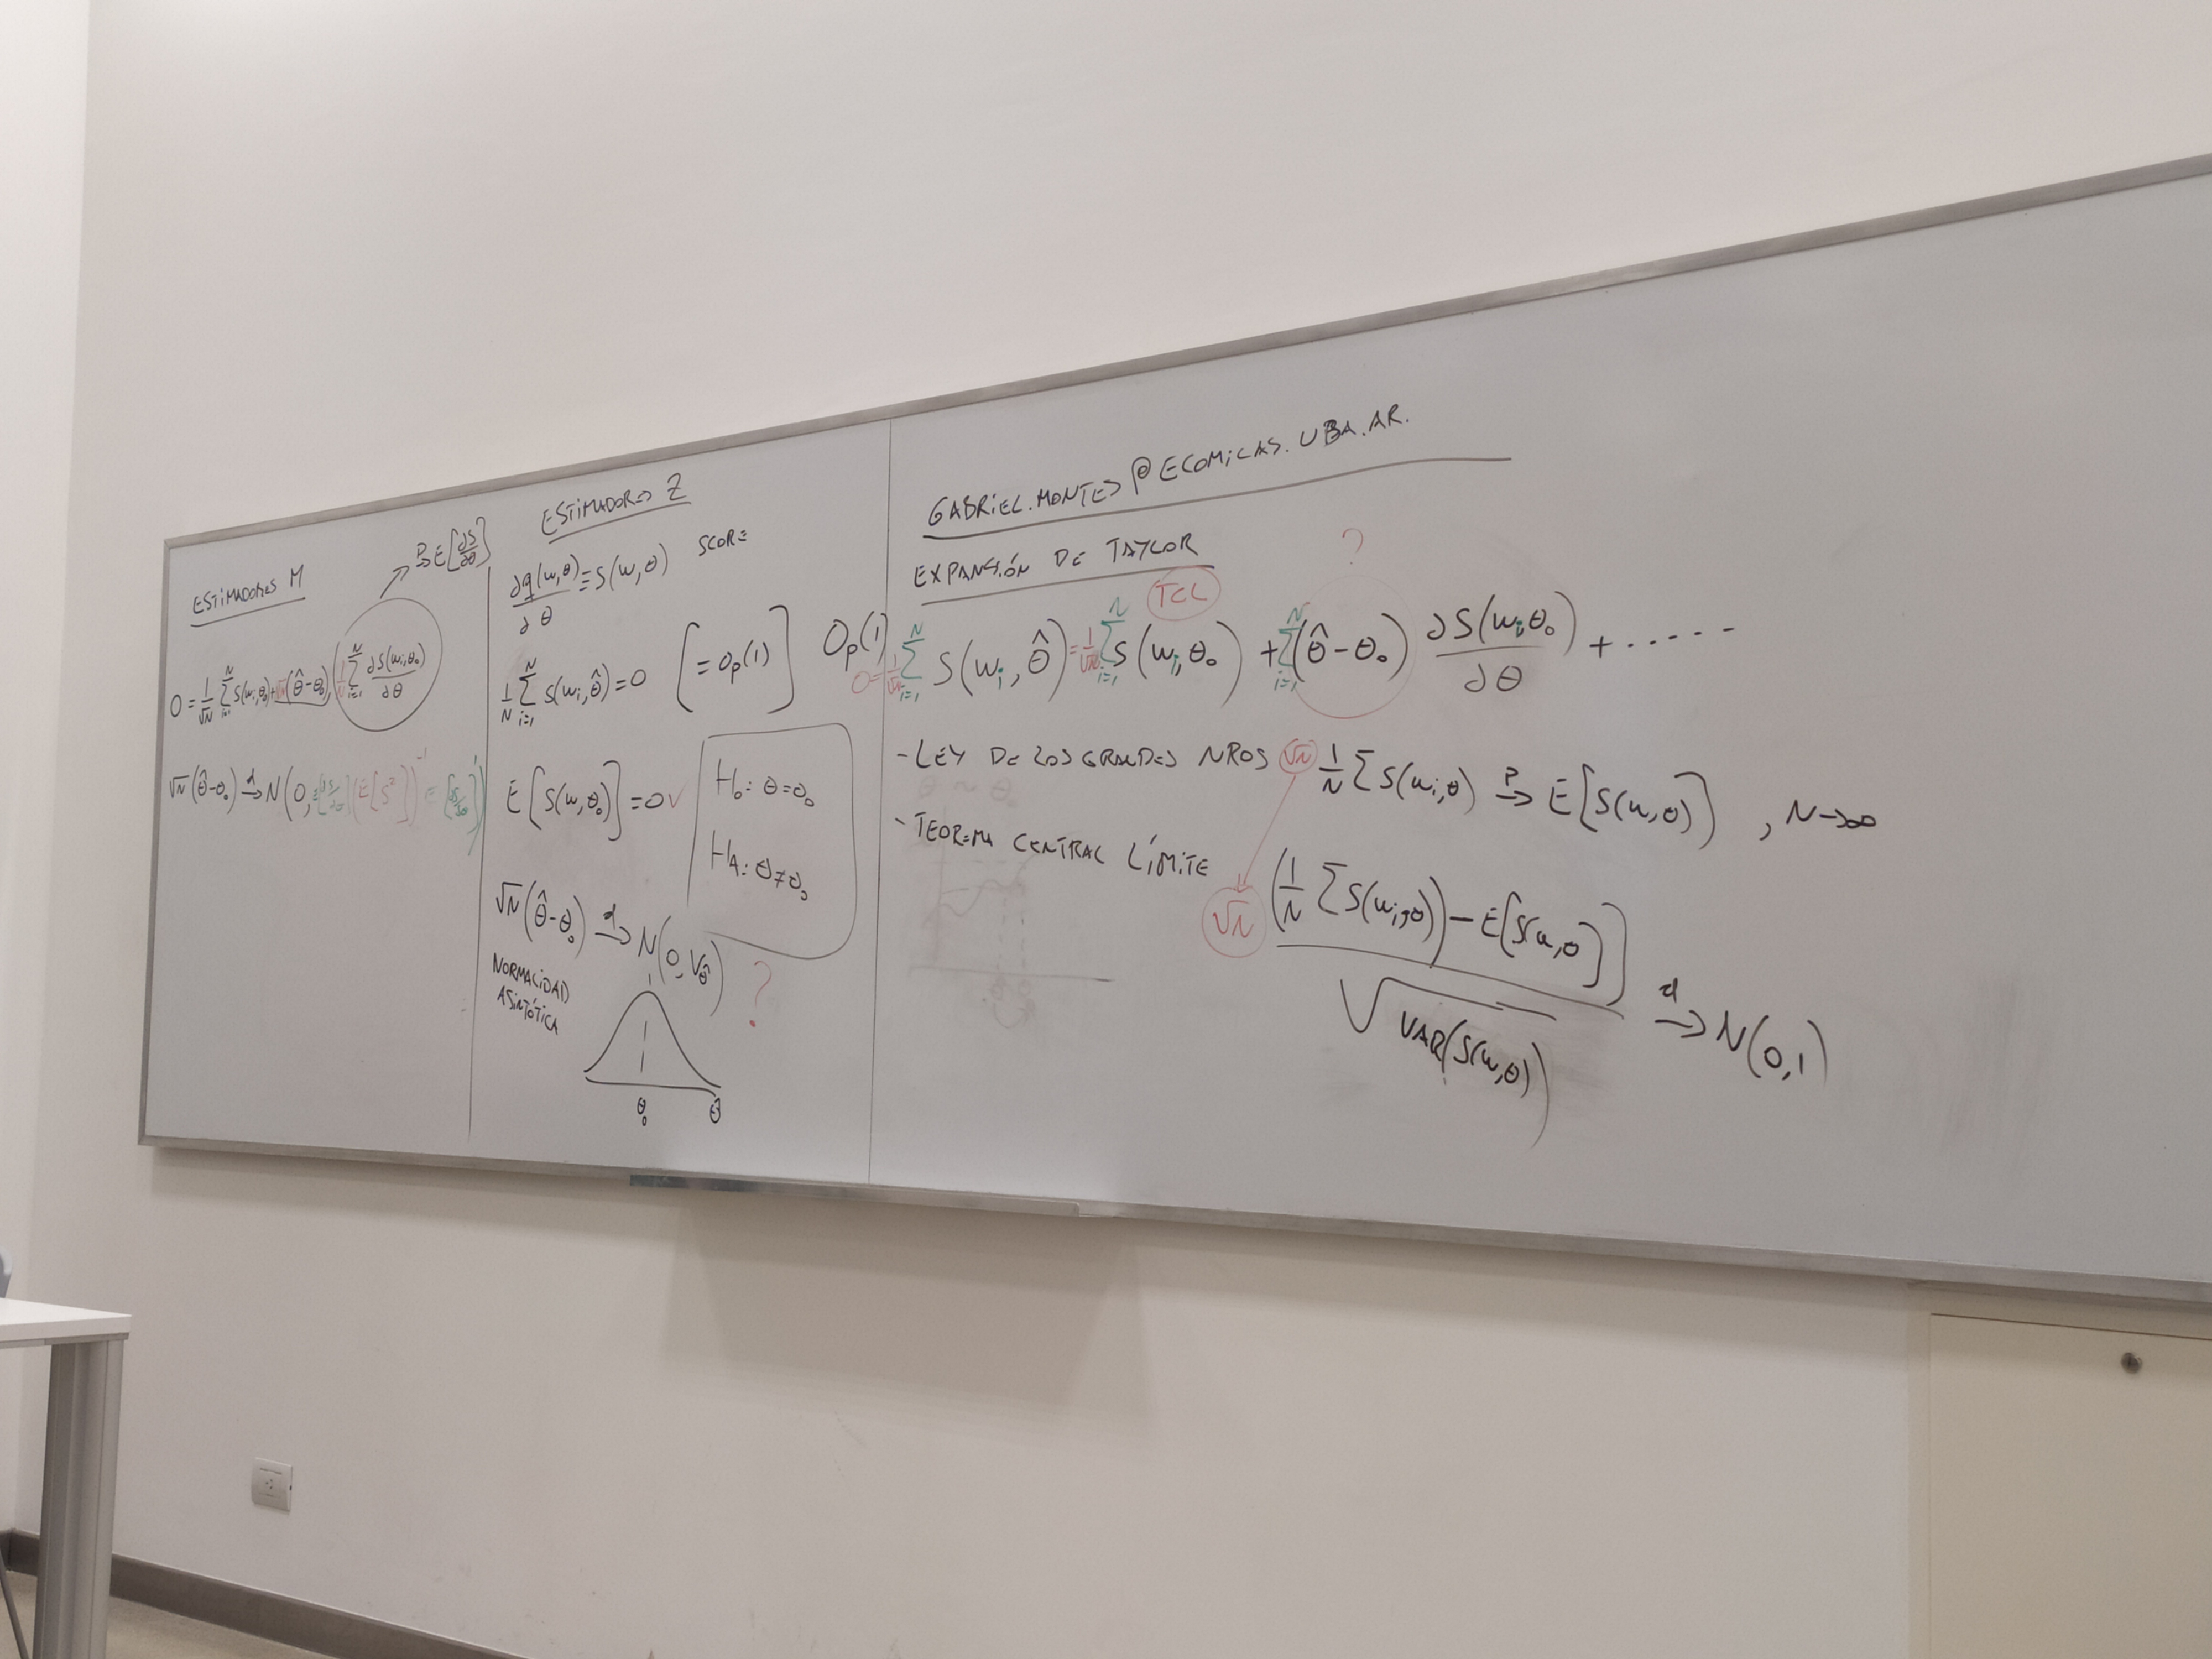 ESTIMADORES M
→ᵖ E[∂S/∂θ]
0 = 1/√N ∑ᵢ₌₁ᴺ S(wᵢ,θ₀) + √N(θ̂-θ₀) (1/N ∑ᵢ₌₁ᴺ ∂S(wᵢ,θ₀)/∂θ)
√N(θ̂-θ₀) →ᵈ N(0, E[∂S/∂θ](E[S²])⁻¹ E[∂S/∂θ]')
ESTIMADORES Z
∂q(w,θ)/∂θ ≡ S(w,θ) SCORE
1/N ∑ᵢ₌₁ᴺ S(wᵢ,θ̂) = 0 [= op(1)] Op(1)
E[S(w,θ₀)] = 0 ✓
H₀: θ=θ₀
H_A: θ≠θ₀
√N(θ̂-θ₀) →ᵈ N(0, V_θ̂) ?
NORMALIDAD
ASINTÓTICA
θ₀ θ̂
GABRIEL.MONTES@ECOMICAS.UBA.AR.
EXPANSIÓN DE TAYLOR
TCL ?
0 = 1/√N ∑ᵢ₌₁ᴺ S(wᵢ,θ̂) = 1/√N ∑ᵢ₌₁ᴺ S(wᵢ,θ₀) + ∑ᵢ₌₁ᴺ (θ̂-θ₀) ∂S(wᵢθ₀)/∂θ + .....
- LEY DE LOS GRANDES NROS √N 1/N ∑ S(wᵢ,θ) →ᵖ E[S(w,θ)] , N→∞
- TEOREMA CENTRAL LÍMITE
√N (1/N ∑ S(wᵢ,θ)) - E[S(w,θ)] / √VAR(S(w,θ)) →ᵈ N(0,1)